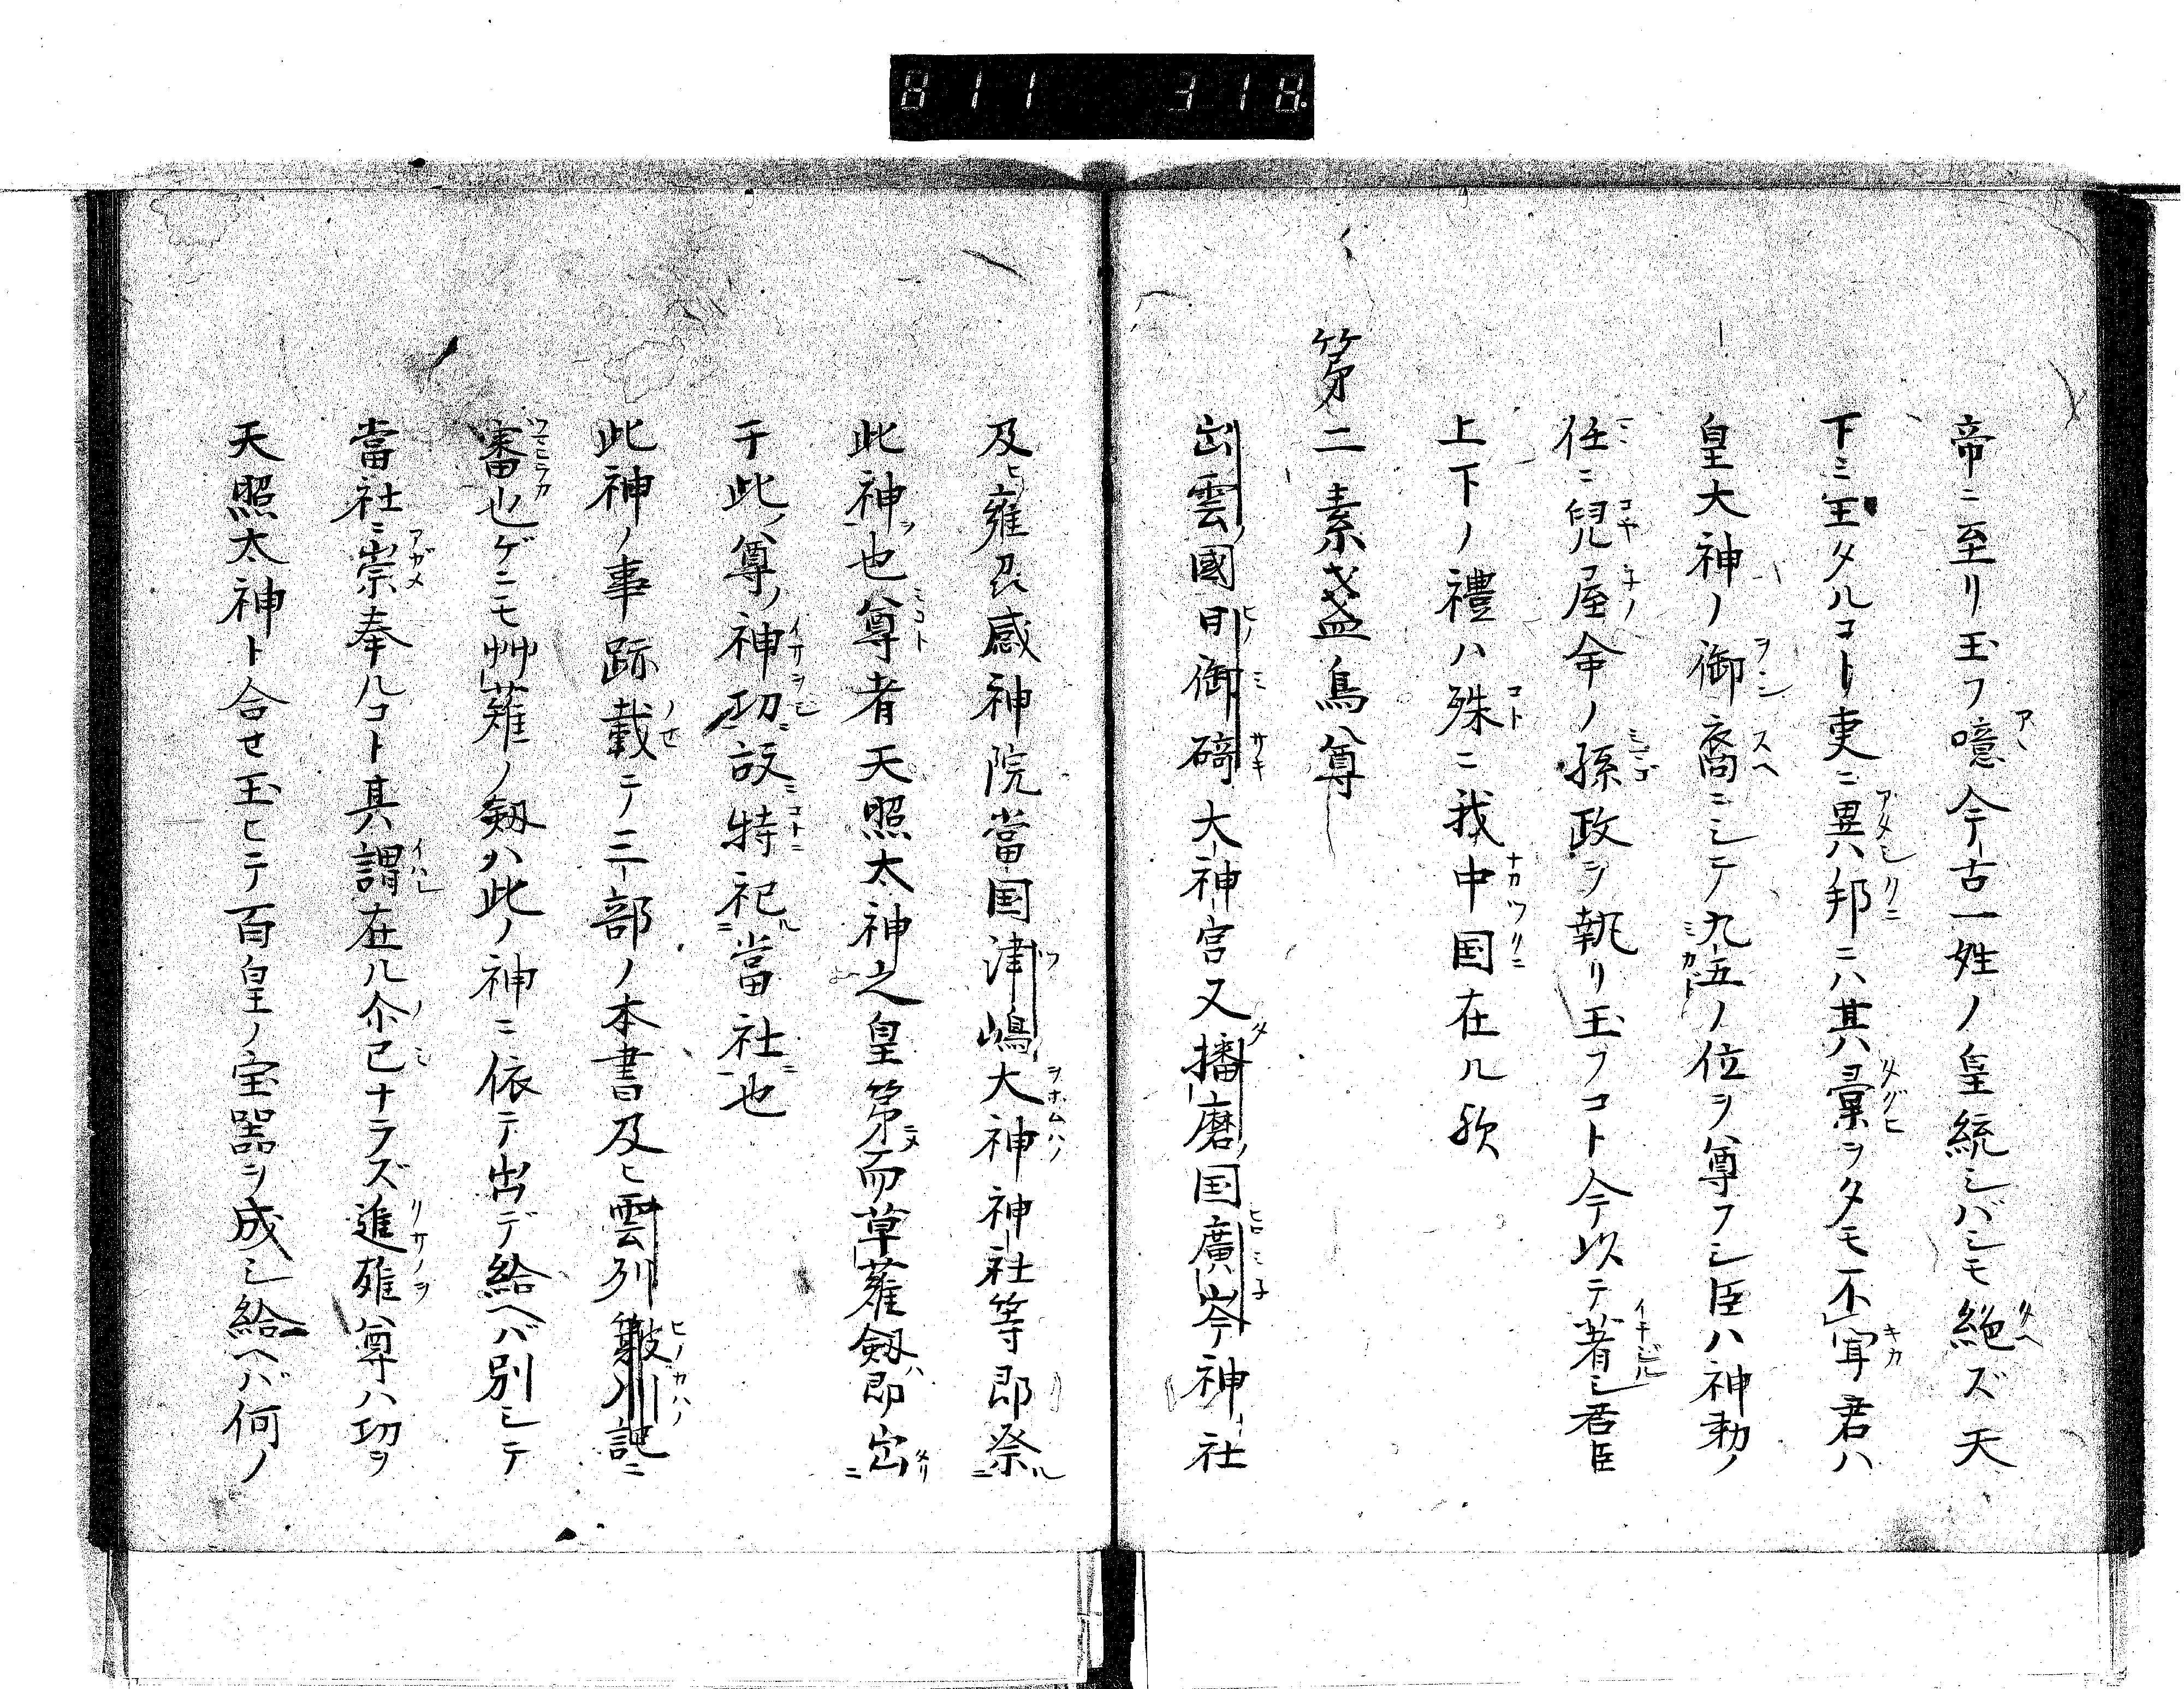 811 318.
帝ニ至リ玉フ噫今古一姓ノ皇統シバシモ絶ズ天
下ニ王タルコト吏ニ異邦ニハ其彙ヲタモ不聞君ハ
皇大神ノ御裔ニシテ九五ノ位ヲ尊フシ臣ハ神勅ノ
任ニ兒屋命ノ孫政ヲ執リ玉フコト今以テ著シ君臣
上下ノ禮ハ殊ニ我中国在ル欤
第二素戔盞烏尊
出雲國日御碕大神宮又播磨国廣岑神社
及ヒ雍列感神院當国津嶋大神神社等即祭
此神也尊者天照太神之皇第而草薙劔即出
于此尊ノ神功故特祀當社也
此神ノ事跡載テ三部ノ本書及ヒ雲列簸川記ニ
審也ゲニモ艸薙ノ劔ハ此ノ神ニ依テ出デ給ヘバ別シテ
當社ニ崇奉ルコト其謂在ル尒已ナラズ進雄尊ハ功ヲ
天照太神ト合セ玉ヒテ百皇ノ宝器ヲ成シ給ヘバ何ノ